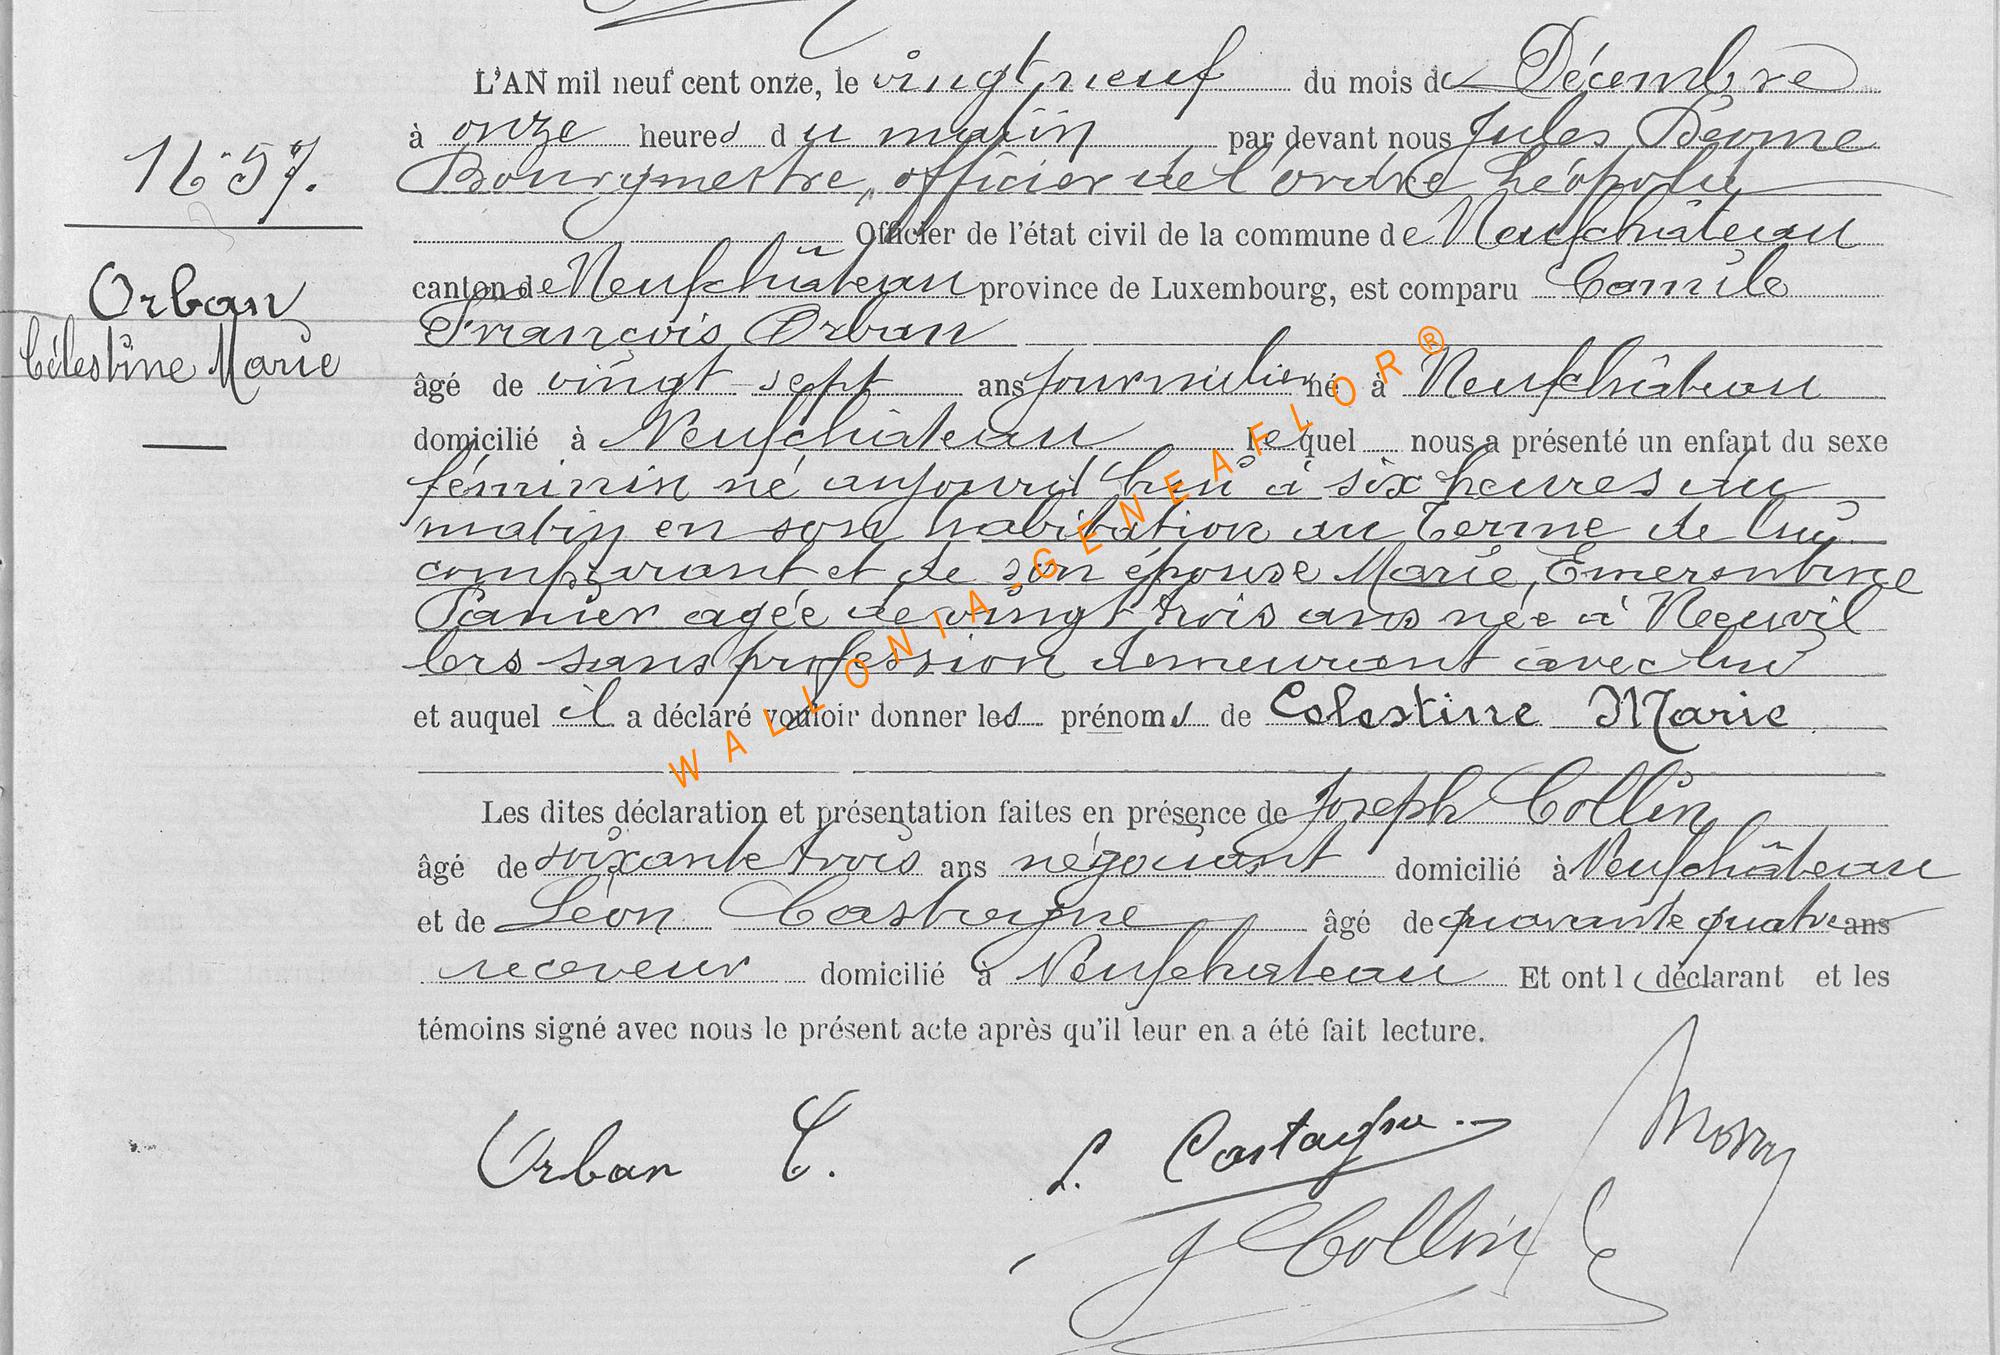 L'AN mil neuf cent onze, le vingt neuf du mois de Décembre
à onze heures du matin par devant nous Jules
Bourgmestre, officier de l'ordre Léopold
Officier de l'état civil de la commune de Neufchâteau
canton de Neufchâteau province de Luxembourg, est comparu Camile
François Orban
âgé de vingt sept ans journalier né à Neufchâteau
domicilié à Neufchâteau lequel nous a présenté un enfant du sexe
féminin né aujourd'hui à six heures du
matin en son habitation au terme de lui
comparant et de son épouse Marie, Emerentine
Panier agée de vingt trois ans née à Neuvil
lers sans profession demeurant avec lui
et auquel il a déclaré vouloir donner les prénoms de Célestine Marie
Les dites déclaration et présentation faites en présence de Joseph Collin
âgé de soixante trois ans négociant domicilié à Neufchâteau
et de Léon Castagne âgé de quarante quatre ans
receveur domicilié à Neufchateau Et ont le déclarant et les
témoins signé avec nous le présent acte après qu'il leur en a été fait lecture.
Orban C.
L. Castagne
J Collin
N° 57.
Orban
Célestine Marie
WALLONIA-GENEAFLOR®